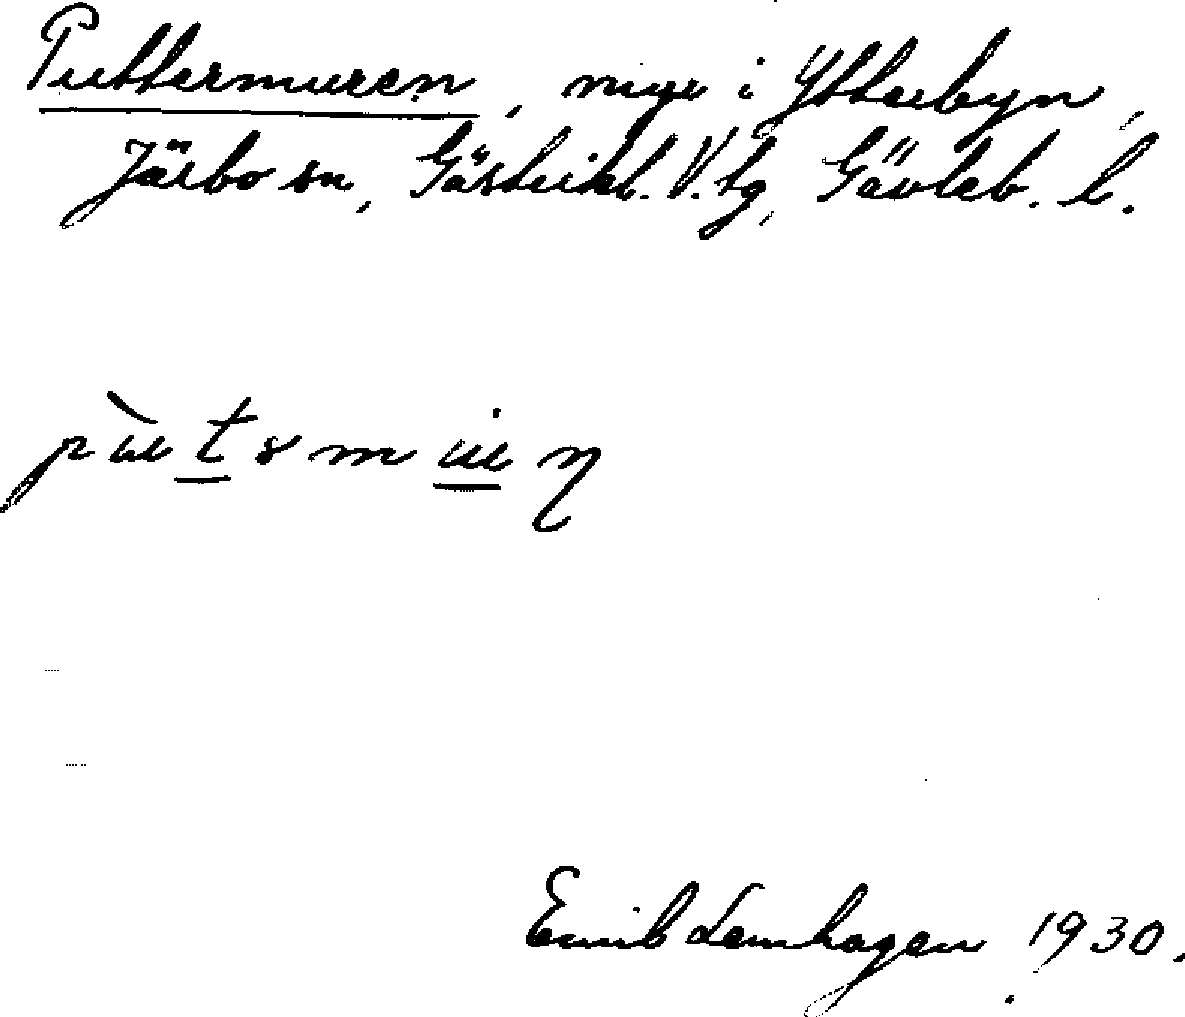 Puttermuren, myr i Ytterbyn,
Järbo sn, Gästrikl. V. tg, Gävleb. l.
Emil Lenhagen 1930.